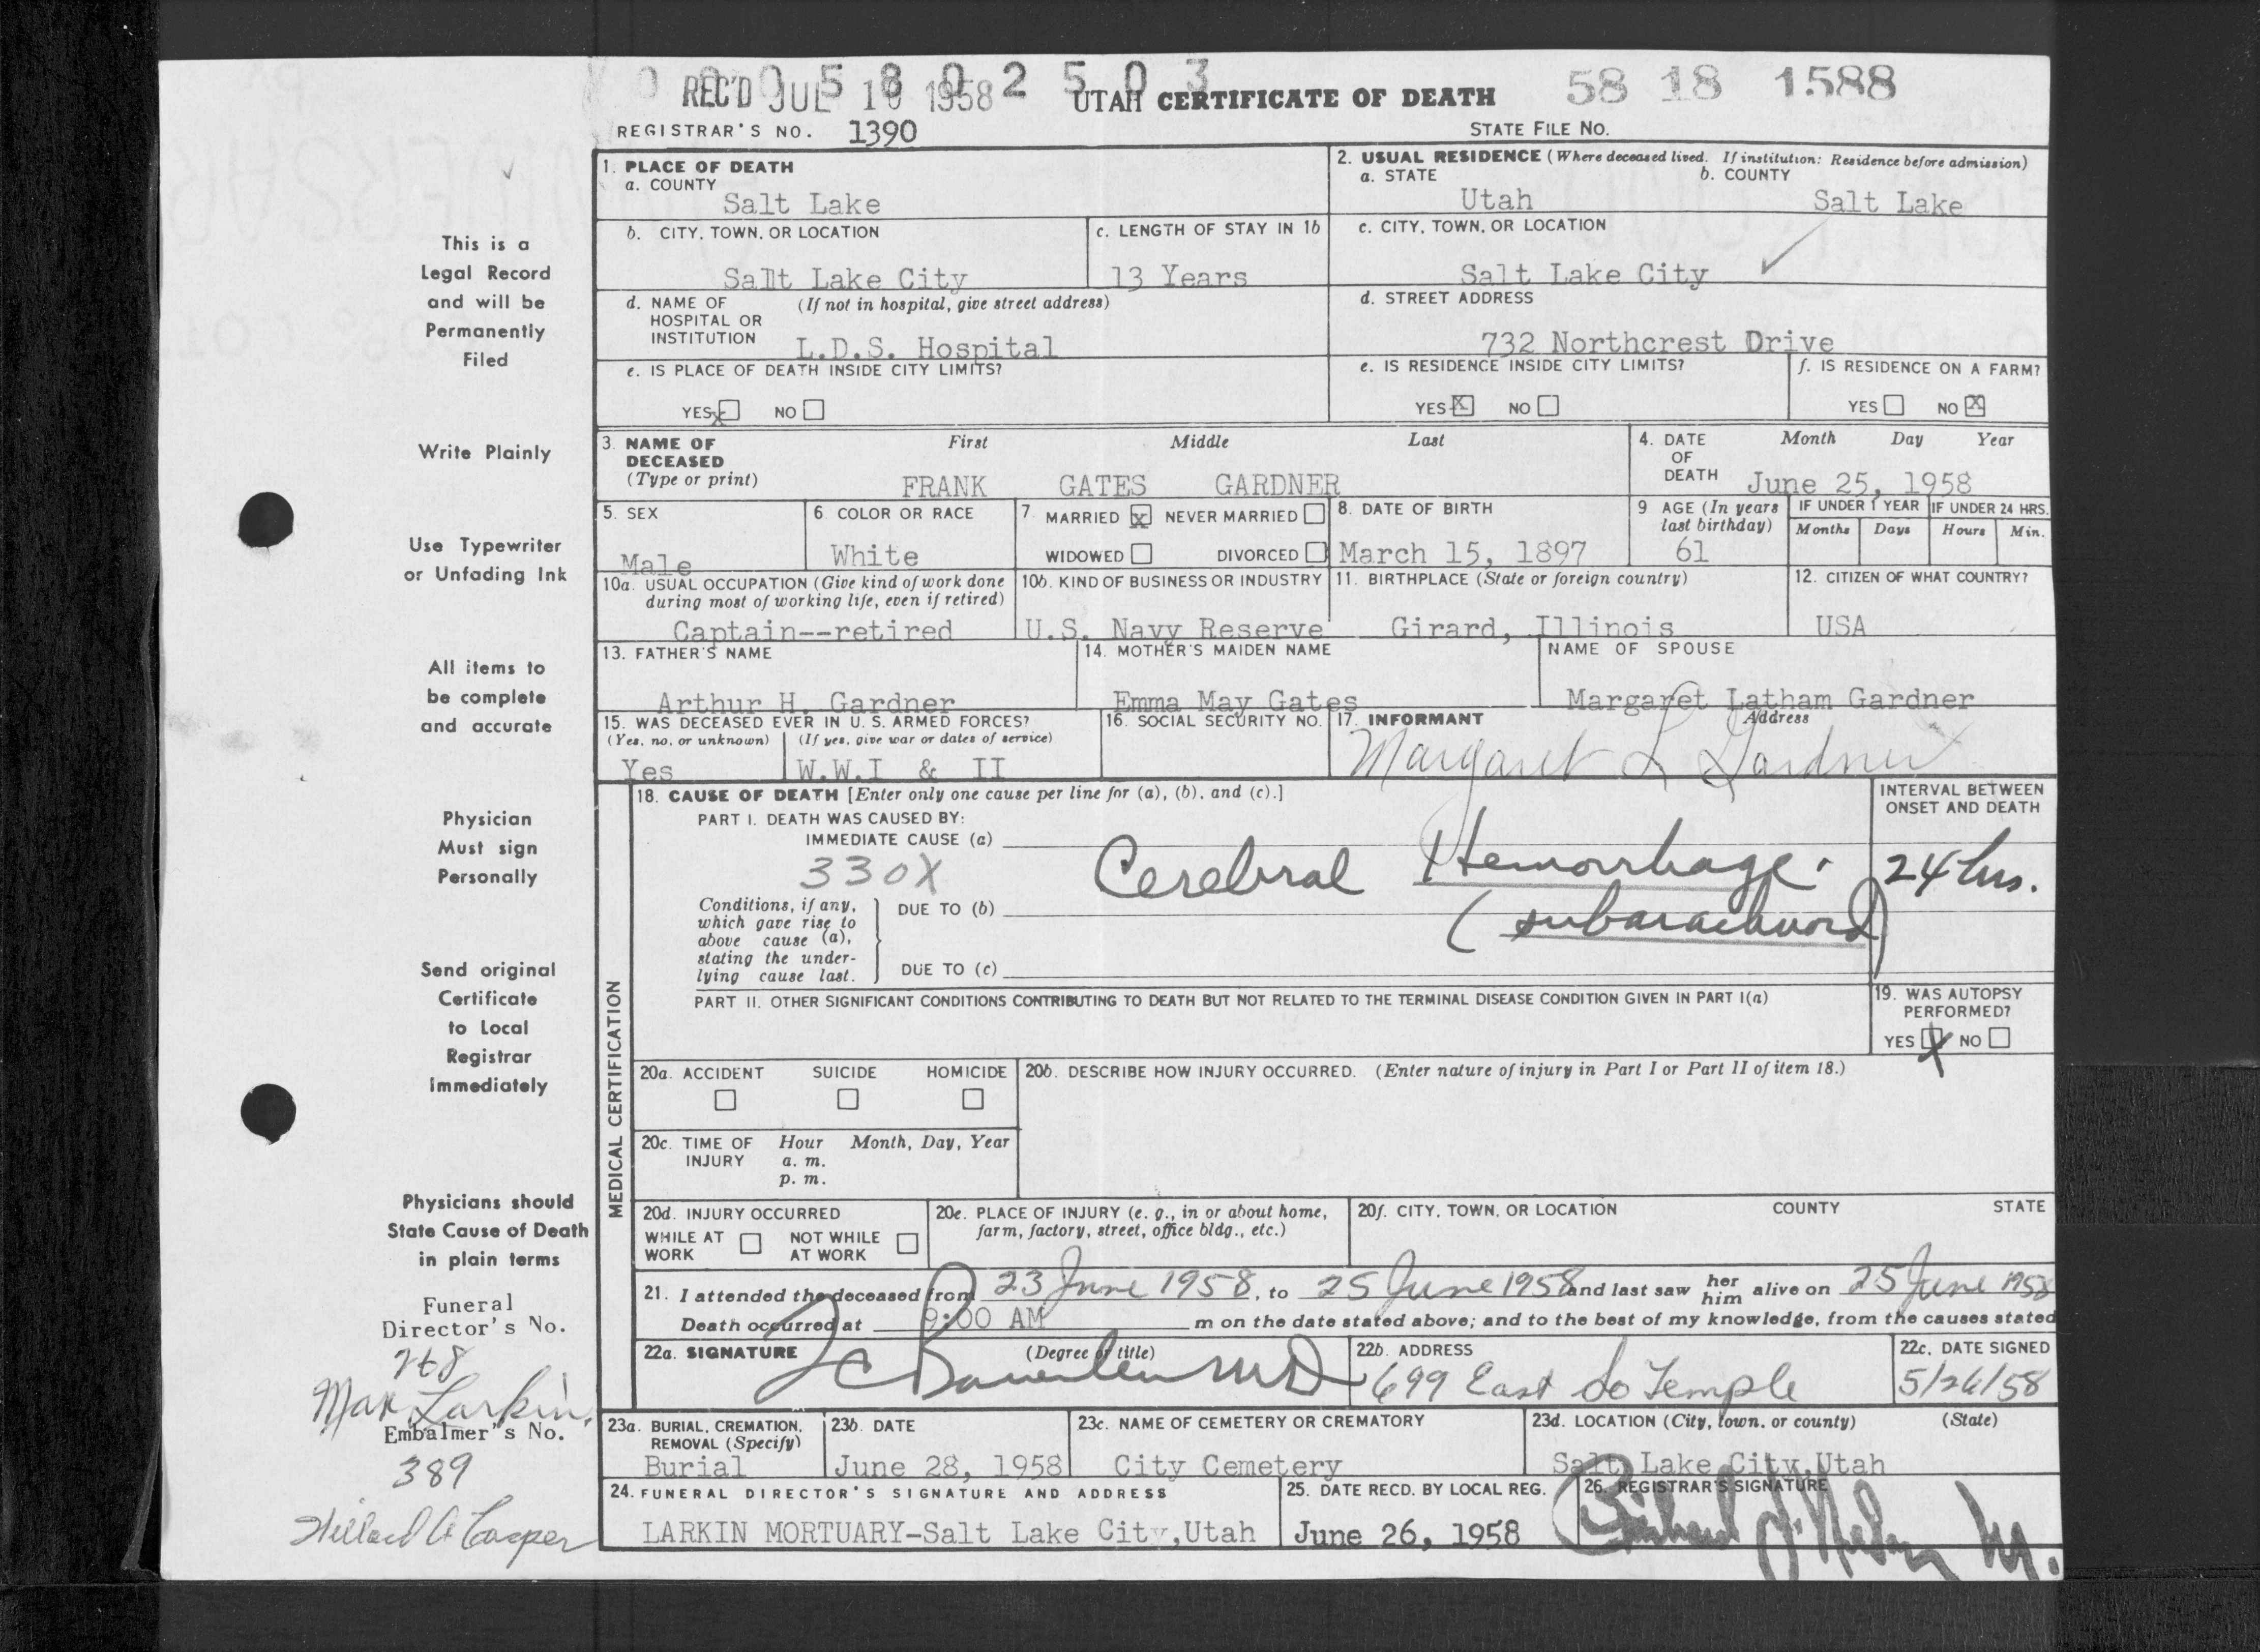 0 0 0 5 8 0 2 5 0 3
REC'D JUL 10 1958 UTAH CERTIFICATE OF DEATH 58 18 1588
REGISTRAR'S NO. 1390 STATE FILE No.
1. PLACE OF DEATH
a. COUNTY
Salt Lake
2. USUAL RESIDENCE (Where deceased lived. If institution: Residence before admission)
a. STATE b. COUNTY
Utah Salt Lake
b. CITY, TOWN, OR LOCATION
Salt Lake City
c. LENGTH OF STAY IN 1b
13 Years
c. CITY, TOWN, OR LOCATION
Salt Lake City
d. NAME OF (If not in hospital, give street address)
HOSPITAL OR
INSTITUTION
L.D.S. Hospital
d. STREET ADDRESS
732 Northcrest Drive
e. IS PLACE OF DEATH INSIDE CITY LIMITS?
YES X NO
e. IS RESIDENCE INSIDE CITY LIMITS?
YES X NO
f. IS RESIDENCE ON A FARM?
YES NO X
3. NAME OF First Middle Last
DECEASED
(Type or print)
FRANK GATES GARDNER
4. DATE Month Day Year
OF
DEATH June 25, 1958
5. SEX
Male
6. COLOR OR RACE
White
7. MARRIED X NEVER MARRIED
WIDOWED DIVORCED
8. DATE OF BIRTH
March 15, 1897
9 AGE (In years
last birthday)
61
IF UNDER 1 YEAR IF UNDER 24 HRS.
Months Days Hours Min.
10a. USUAL OCCUPATION (Give kind of work done
during most of working life, even if retired)
Captain--retired
10b. KIND OF BUSINESS OR INDUSTRY
U.S. Navy Reserve
11. BIRTHPLACE (State or foreign country)
Girard, Illinois
12. CITIZEN OF WHAT COUNTRY?
USA
13. FATHER'S NAME
Arthur H. Gardner
14. MOTHER'S MAIDEN NAME
Emma May Gates
NAME OF SPOUSE
Margaret Latham Gardner
15. WAS DECEASED EVER IN U. S. ARMED FORCES?
(Yes, no, or unknown) (If yes, give war or dates of service)
Yes W.W.I & II
16. SOCIAL SECURITY NO.
17. INFORMANT Address
Margaret L Gardner
MEDICAL CERTIFICATION
18. CAUSE OF DEATH [Enter only one cause per line for (a), (b), and (c).]
PART I. DEATH WAS CAUSED BY:
IMMEDIATE CAUSE (a)
330X Cerebral Hemorrhage.
Conditions, if any,
which gave rise to
above cause (a),
stating the under-
lying cause last.
DUE TO (b) (subarachnoid)
DUE TO (c)
INTERVAL BETWEEN
ONSET AND DEATH
24 hrs.
PART II. OTHER SIGNIFICANT CONDITIONS CONTRIBUTING TO DEATH BUT NOT RELATED TO THE TERMINAL DISEASE CONDITION GIVEN IN PART I(a)
19. WAS AUTOPSY
PERFORMED?
YES X NO
20a. ACCIDENT SUICIDE HOMICIDE
20b. DESCRIBE HOW INJURY OCCURRED. (Enter nature of injury in Part I or Part II of item 18.)
20c. TIME OF Hour Month, Day, Year
INJURY a. m.
p. m.
20d. INJURY OCCURRED
WHILE AT NOT WHILE
WORK AT WORK
20e. PLACE OF INJURY (e. g., in or about home,
farm, factory, street, office bldg., etc.)
20f. CITY, TOWN, OR LOCATION COUNTY STATE
21. I attended the deceased from 23 June 1958, to 25 June 1958 and last saw her him alive on 25 June 1958
Death occurred at 9:00 AM m on the date stated above; and to the best of my knowledge, from the causes stated
22a. SIGNATURE (Degree or title)
MD
22b. ADDRESS
699 East So Temple
22c. DATE SIGNED
5/26/58
23a. BURIAL, CREMATION,
REMOVAL (Specify)
Burial
23b. DATE
June 28, 1958
23c. NAME OF CEMETERY OR CREMATORY
City Cemetery
23d. LOCATION (City, town, or county) (State)
Salt Lake City, Utah
24. FUNERAL DIRECTOR'S SIGNATURE AND ADDRESS
LARKIN MORTUARY-Salt Lake City,Utah
25. DATE RECD. BY LOCAL REG.
June 26, 1958
26. REGISTRAR'S SIGNATURE
This is a
Legal Record
and will be
Permanently
Filed
Write Plainly
Use Typewriter
or Unfading Ink
All items to
be complete
and accurate
Physician
Must sign
Personally
Send original
Certificate
to Local
Registrar
immediately
Physicians should
State Cause of Death
in plain terms
Funeral
Director's No.
268
Max Larkin
Embalmer's No.
389